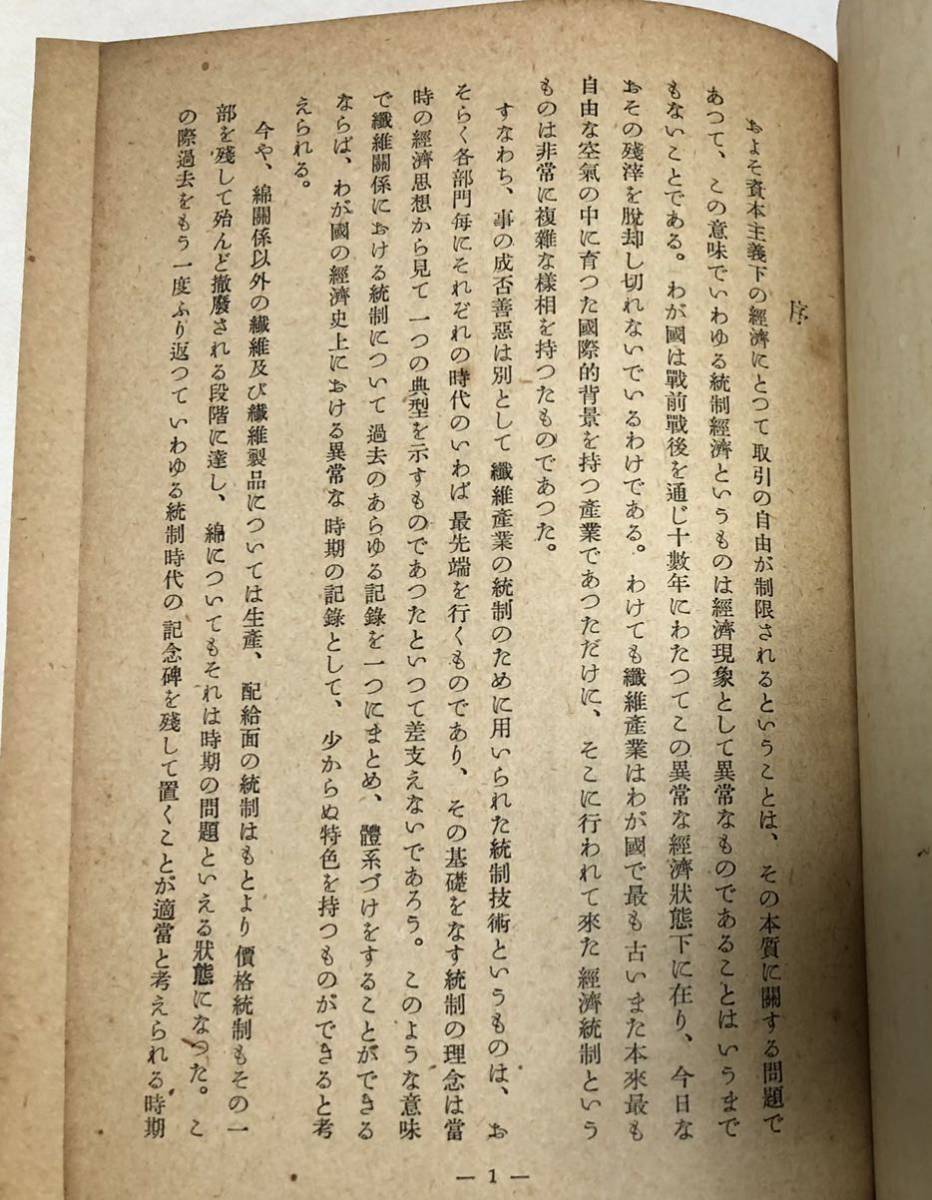 序
およそ資本主義下の經濟にとつて取引の自由が制限されるということは、その本質に關する問題で
あつて、この意味でいわゆる統制經濟というものは經濟現象として異常なものであることはいうまで
もないことである。わが國は戰前戰後を通じ十數年にわたつてこの異常な經濟狀態下に在り、今日な
おその残滓を脱却し切れないでいるわけである。わけても纖維產業はわが國で最も古いまた本來最も
自由な空氣の中に育つた國際的背景を持つ產業であつただけに、そこに行われて來た經濟統制という
ものは非常に複雜な樣相を持つたものであつた。
すなわち、事の成否善惡は別として纖維產業の統制のために用いられた統制技術というものは、お
そらく各部門每にそれぞれの時代のいわば最先端を行くものであり、その基礎をなす統制の理念は當
時の經濟思想から見て一つの典型を示すものであつたといつて差支えないであろう。このような意味
で纖維關係における統制について過去のあらゆる記錄を一つにまとめ、體系づけをすることができる
ならば、わが國の經濟史上における異常な時期の記錄として、少からぬ特色を持つものができると考
えられる。
今や、綿關係以外の纖維及び纖維製品については生產、配給面の統制はもとより價格統制もその一
部を残して殆んど撤廢される段階に達し、綿についてもそれは時期の問題といえる狀態になつた。こ
の際過去をもう一度ふり返つていわゆる統制時代の記念碑を残して置くことが適當と考えられる時期
— 1 —